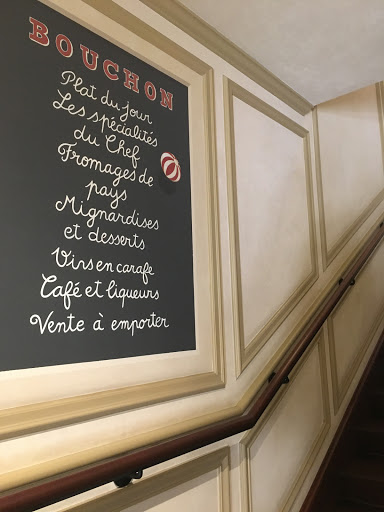 BOUCHON
Plat du jour
Les spécialités
du Chef
Fromages de
pays
Mignardises
et desserts
Vins en carafe
Café et liqueurs
Vente à emporter